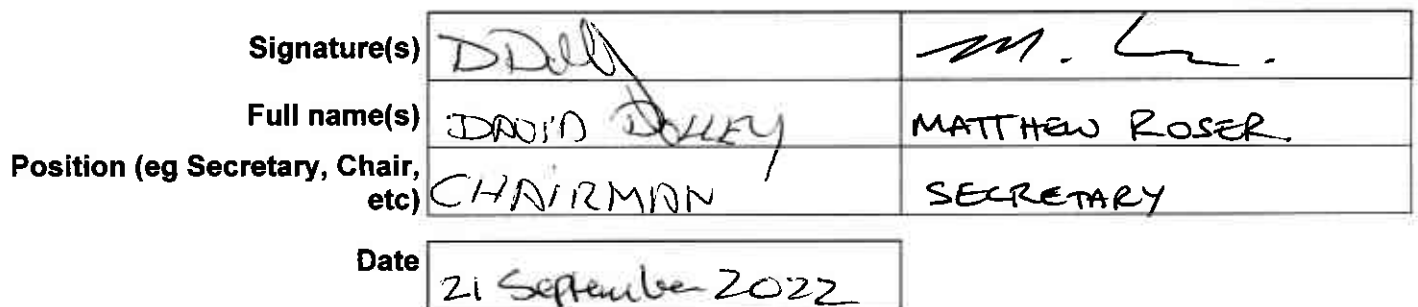 Signature(s) DDolley M.
Full name(s) DAVID DOLLEY MATTHEW ROSER.
Position (eg Secretary, Chair,
etc) CHAIRMAN SECRETARY
Date 21 September 2022